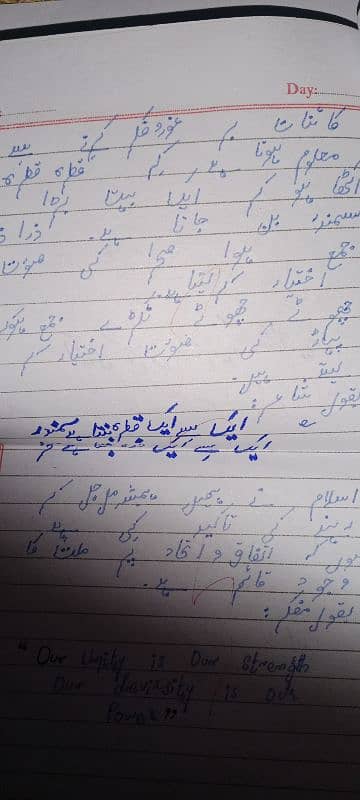 Day:
کائنات پر غوروفکر کرنے سے
معلوم ہوتا ہے کہ قطرہ قطرہ
اکٹھا ہو کر ایک بہت بڑا
سمندر بن جاتا ہے۔ ذرا ذ
جمع ہوا صحرا کی صورت
اختیار کر لیتا ہے۔
چھوٹے چھوٹے ٹکڑے جمع ہوکر
پہاڑ کی صورت اختیار کر
لیتے ہیں۔
بقول شاعر:
ایک سے ایک قطرہ بنتا ہے سمندر
ایک سے ایک
اسلام نے ہمیں ہمیشہ مل جل کر
رہنے کی تاکید کی ہے
کیوں کہ اتفاق و اتحاد پر ملت کا
وجود قائم ہے۔
بقول مفکر:
"Our Unity is Our Strength
Our diversity is our
Power"